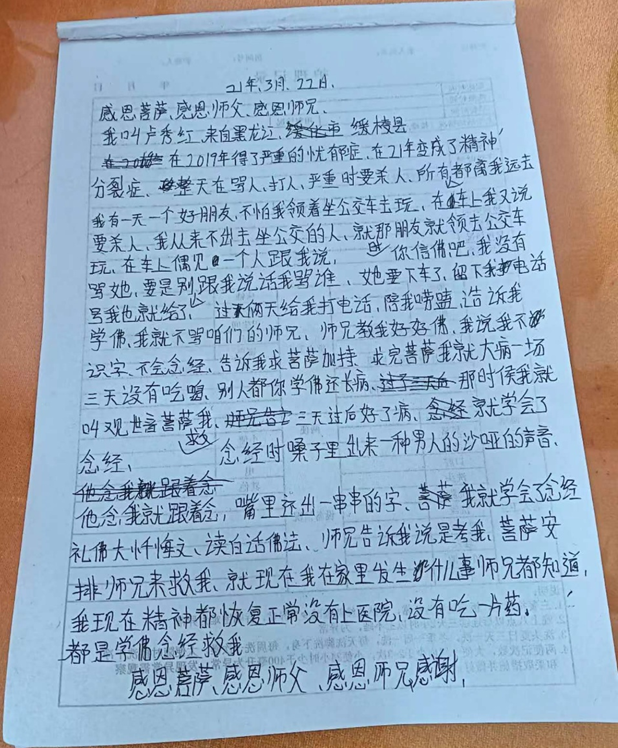 21年3月22日.
感恩菩萨、感恩师父、感恩师兄.
我叫卢秀红、来自黑龙江、绥化市 绥棱县
在2019年得了严重的忧郁症、在21年变成了精神
分裂症、整天在骂人、打人、严重时要杀人、所有人都离我远去
我有一天一个好朋友、不怕我领着坐公交车去玩、在车上我又说
要杀人、我从来不出去坐公交的人、就那朋友就领去公交车
玩、在车上偶见一个人跟我说、你信佛吧、我没有
骂她、要是别人跟我说话我骂谁、她要下车了、留下我电话
号我也就给了、过俩天给我打电话、陪我唠盟、告诉我
学佛、我就不骂咱们的师兄、师兄教我好好佛、我说我不
识字、不会念经、告诉我求菩萨加持、求完菩萨我就大病一场
三天没有吃喝、别人都你学佛还长病、那时侯我就
叫观世音菩萨救我、三天过后好了病、念经就学会了
念经、念经时嗓子里出来一种男人的沙哑的声音、
他念我就跟着念
他念我就跟着念，嘴里还出一串串的字、菩萨我就学会了念经
礼佛大忏悔文、读白话佛法、师兄告诉我说是考我、菩萨安
排师兄来救我、就现在我在家里发生什么事师兄都知道、
我现在精神都恢复正常没有上医院、没有吃一片药。
都是学佛念经救我
感恩菩萨、感恩师父、感恩师兄、感谢、